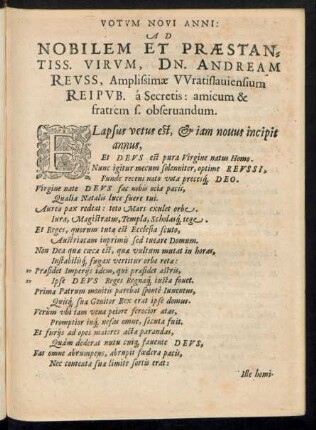 VOTVM NOVI ANNI:
AD
NOBILEM ET PRÆSTAN-
TISS. VIRVM, DN. ANDREAM
REVSS, Amplissimæ VVratislauiensium
REIPVB. á Secretis: amicum &
fratrem s. obseruandum.
ELapsus vetus est, & iam nouus incipit
annus,
Et DEVS est pura Virgine natus Homo.
Nunc igitur mecum solenniter, optime REVSSI,
Funde recens nato vota precesq́; DEO.
Virgine nate DEVS fac nobis ocia pacis,
Qualia Natalis luce fuere tui.
Aurea pax redeat: toto Mars exulet orbe:
Iura, Magistratus, Templa, Scholasq́; tege.
Et Reges, quorum tuta est Ecclesia scuto,
Austriacam inprimis sed tueare Domum.
Non Dea quæ cæca est, quæ vultum mutat in horas,
Instabiliq́; fugax vertitur orba rota:
Præsidet Imperijs idem, qui præsidet astris,
Ipse DEVS Reges Regnaq́; iusta fouet.
Prima Patrum monitis parebat sponte Iuuentus,
Quisq́; sua Genitor Rex erat ipse domus.
Verum vbi iam vena peiore ferocior ætas,
Promptior inq́; nefas omne, secuta fuit.
Et furijs ad opes maiores acta parandas,
Quàm dederat nutu cuiq́; fauente DEVS,
Fas omne abrumpens, abrupit fœdera pacis,
Nec contenta sua limite sortis erat:
Ille homi-